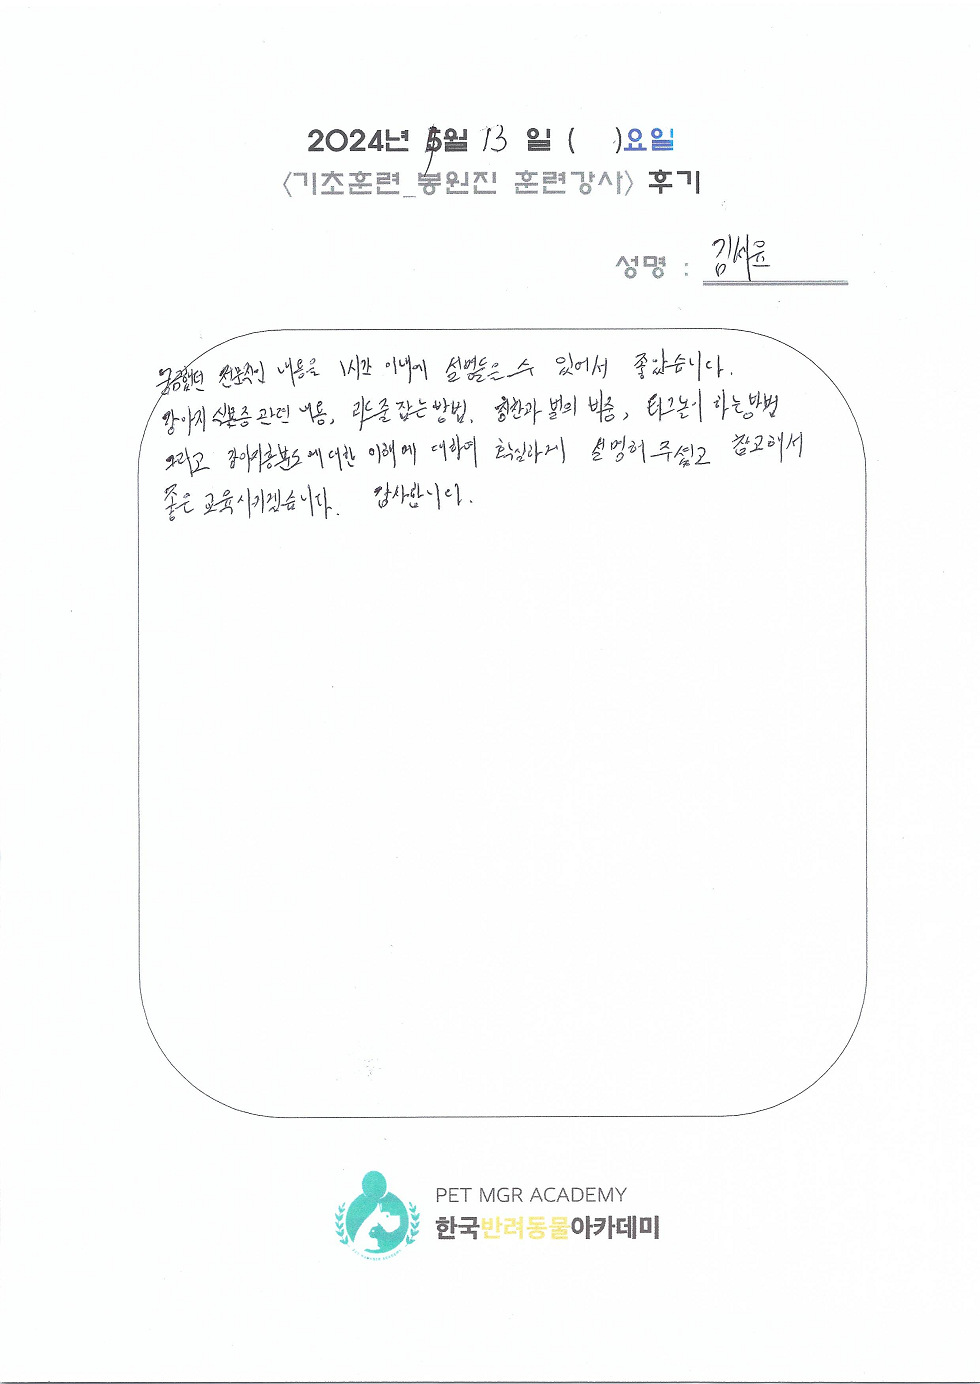 2024년 5월 13 일 (    )요일
<기초훈련_봉원진 훈련강사> 후기
성명 : 김서윤
궁금했던 전문적인 내용을 1시간 이내에 설명들을 수 있어서 좋았습니다.
강아지 식분증 관련 내용, 리드줄 잡는 방법, 칭찬과 벌의 비중, 터그놀이 하는방법
그리고 강아지흥분도에 대한 이해에 대하여 확실하게 설명해 주셨고 참고해서
좋은 교육시키겠습니다. 감사합니다.
PET MGR ACADEMY
한국반려동물아카데미